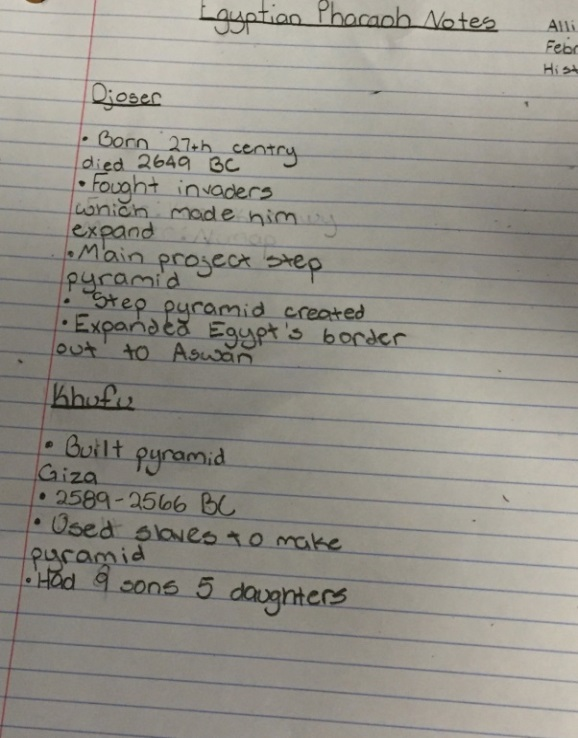 Egyptian Pharaoh Notes
Alli
Febr
Hist
Djoser
• Born 27th centry
died 2649 BC
• Fought invaders
which made him
expand
• Main project step
pyramid
• Step pyramid created
• Expanded Egypt's border
out to Aswan
Khufu
• Built pyramid
Giza
• 2589-2566 BC
• Used slaves to make
pyramid
• Had 9 sons 5 daughters